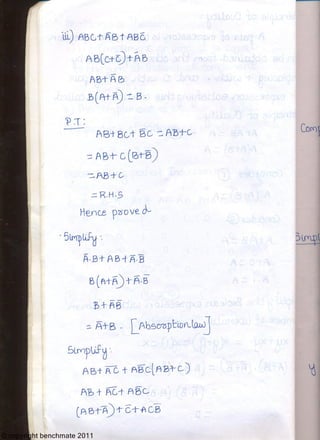 iii) ABC+ĀB+ABC̄
AB(C+C̄)+ĀB
AB+ĀB
B(A+Ā) = B.
P.T:
AB+BC+B̄C = AB+C
= AB+C(B+B̄)
= AB+C
= R.H.S
Hence proved
Simplify:
Ā.B+AB+Ā.B̄
B(A+Ā)+Ā.B̄
B+ĀB̄
= Ā+B. [Absorption law]
Simplify:
AB+A̅C̅+AB̄C(AB+C)
AB+A̅C̅+AB̄C
© copyright benchmate 2011